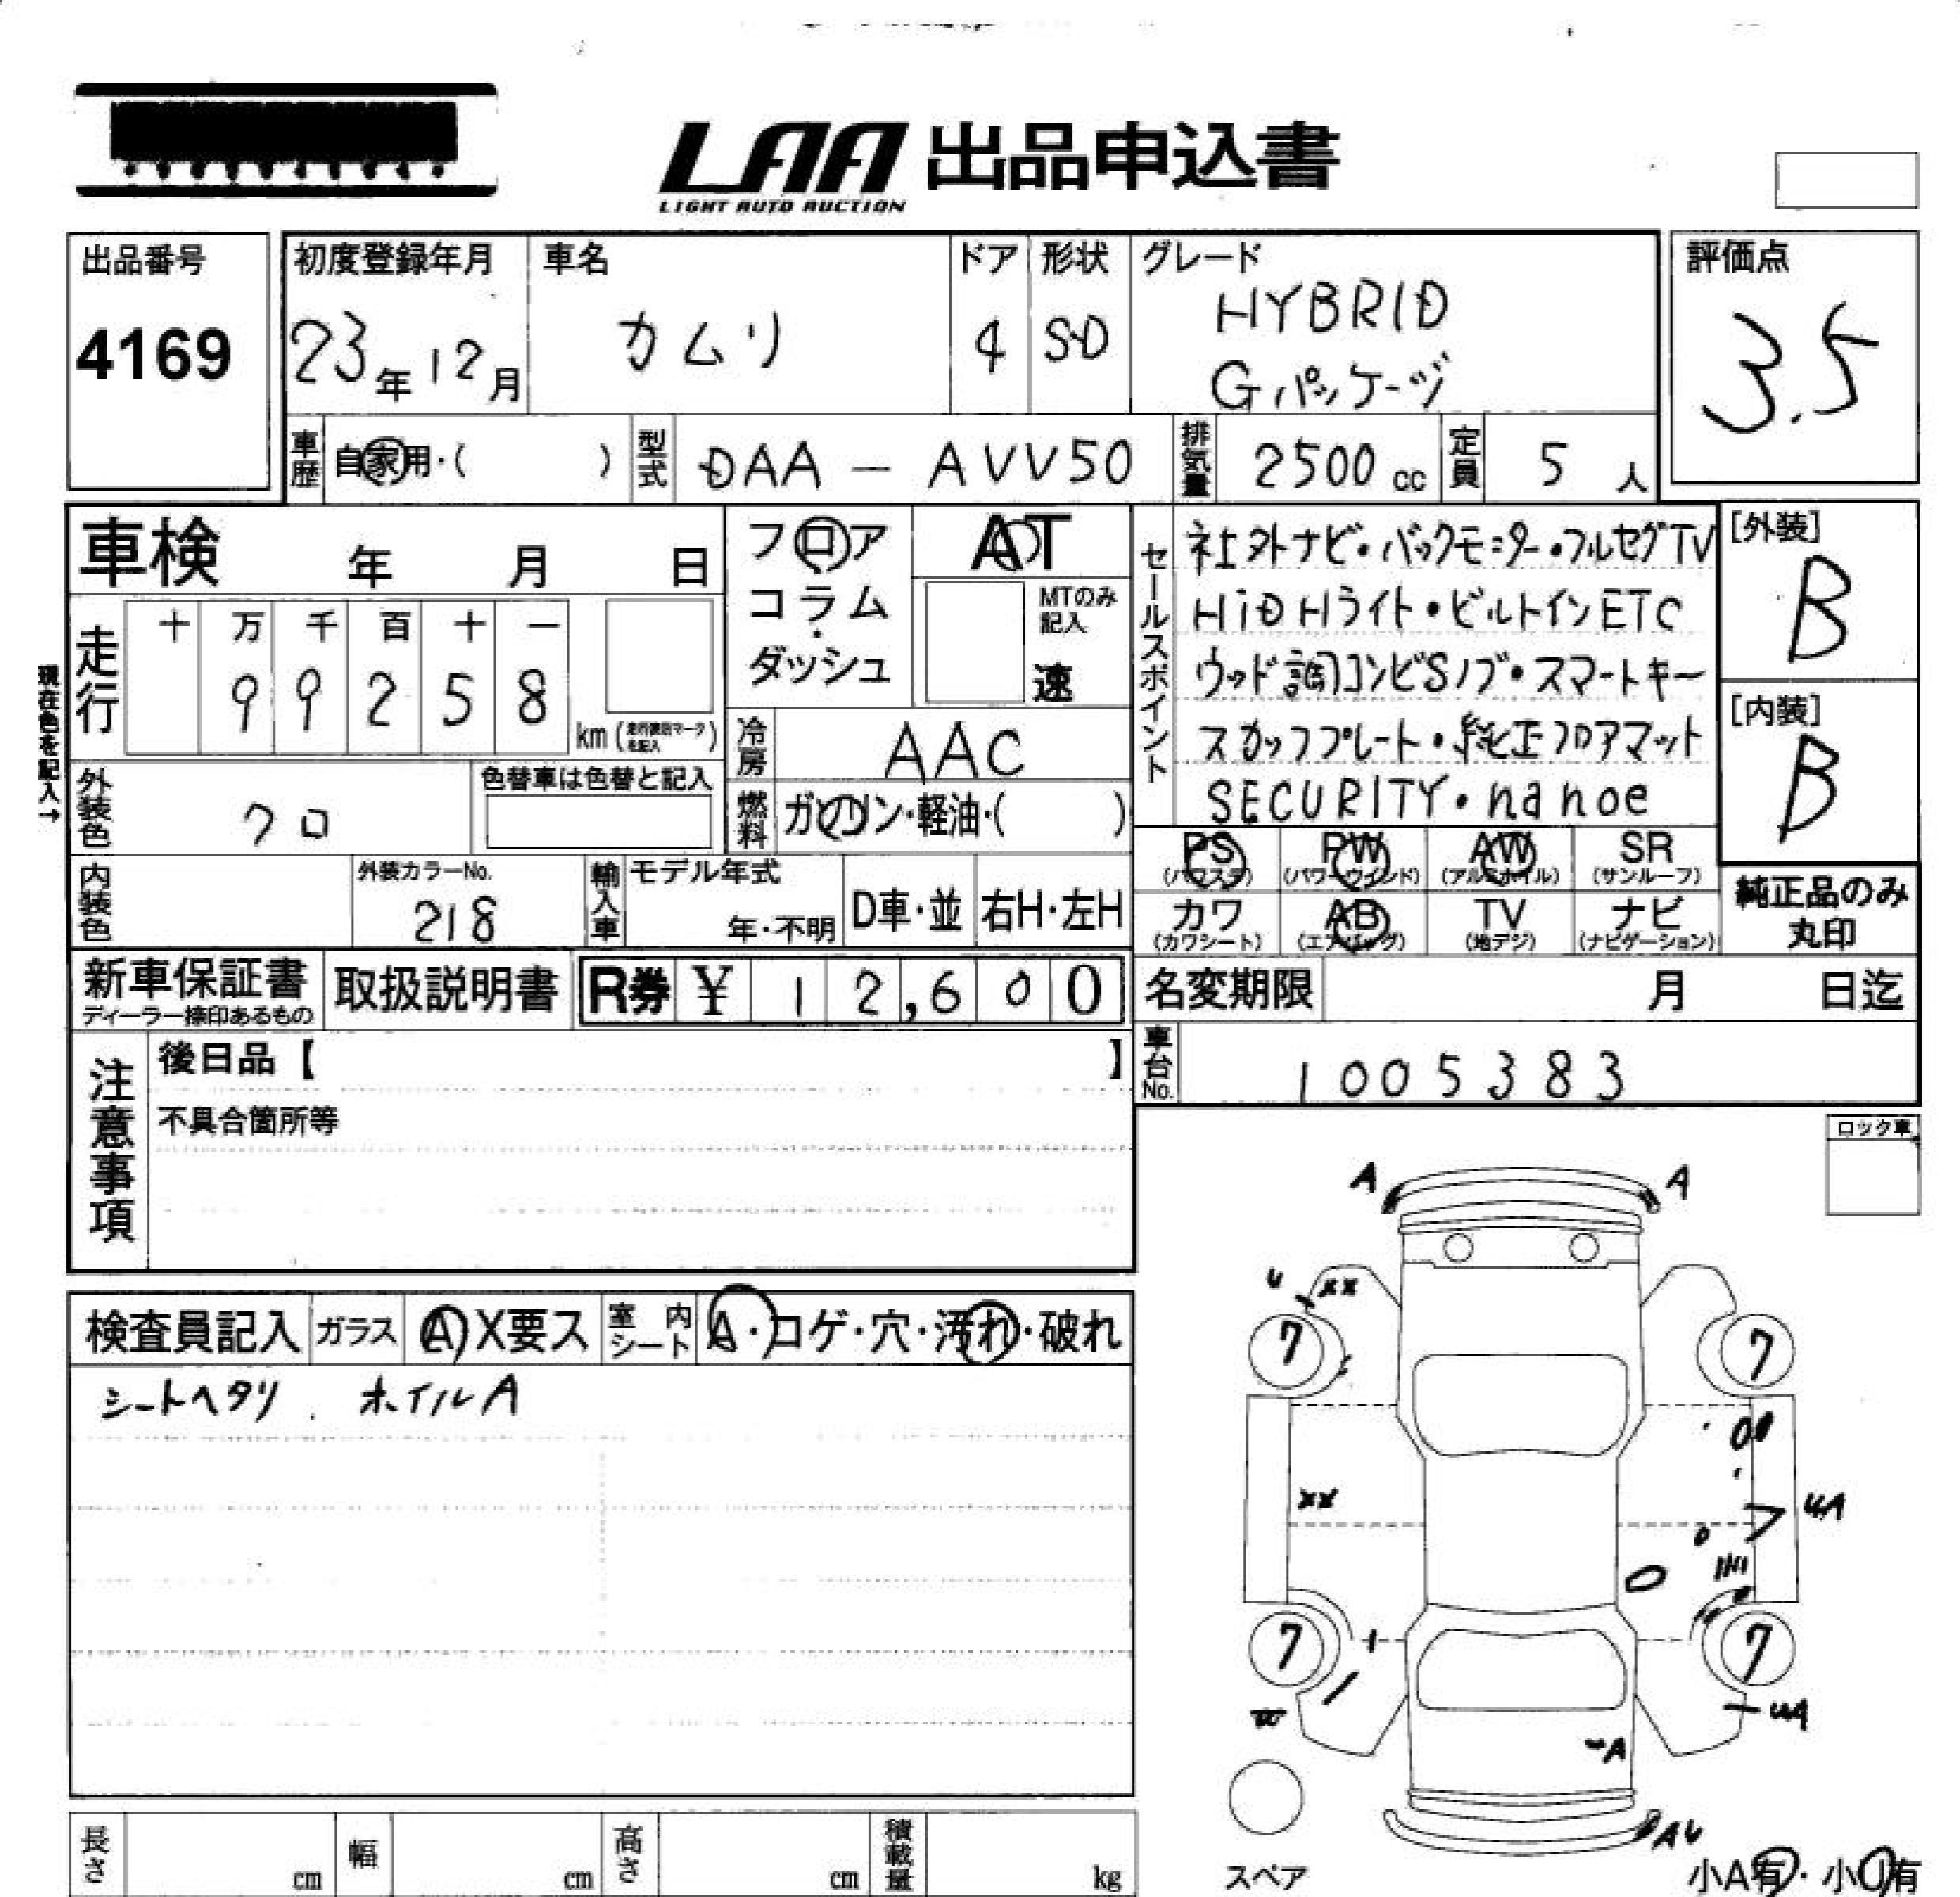 LAA 出品申込書
LIGHT AUTO AUCTION
出品番号
4169
初度登録年月
23年12月
車名
カムリ
ドア
4
形状
SD
グレード
HYBRID
Gパッケージ
評価点
3.5
車歴
自家用・( )
型式
DAA - AVV50
排気量
2500cc
定員
5人
車検 年 月 日
フロア
コラム
ダッシュ
AT
MTのみ
記入
速
現在色を記入→
走行
十 万 千 百 十 一
9 9 2 5 8
km
外装色
クロ
色替車は色替と記入
冷房
AAC
燃料
ガソリン・軽油・( )
セールスポイント
社外ナビ・バックモニター・フルセグTV
HiD Hライト・ビルトインETC
ウッド調コンビSノブ・スマートキー
スカッフプレート・純正フロアマット
SECURITY・nanoe
[外装]
B
[内装]
B
PS
(パワステ)
PW
(パワーウィンド)
AW
(アルミホイル)
SR
(サンルーフ)
カワ
(カワシート)
AB
(エアバッグ)
TV
(地デジ)
ナビ
(ナビゲーション)
純正品のみ
丸印
内装色
外装カラーNo.
218
輸入車
モデル年式
年・不明
D車・並
右H・左H
新車保証書
ディーラー捺印あるもの
取扱説明書
R券 ¥ 1 2,6 0 0
名変期限 月 日迄
車台No.
1005383
注意事項
後日品【 】
不具合箇所等
ロック車
検査員記入
ガラス
A X要ス
室内シート
A・コゲ・穴・汚れ・破れ
シートヘタリ. ホイルA
A
A
U
xx
7
7
xx
UA
7
7
UA
A
AU
スペア
小A有・小U有
長さ
cm
幅
cm
高さ
cm
積載量
kg